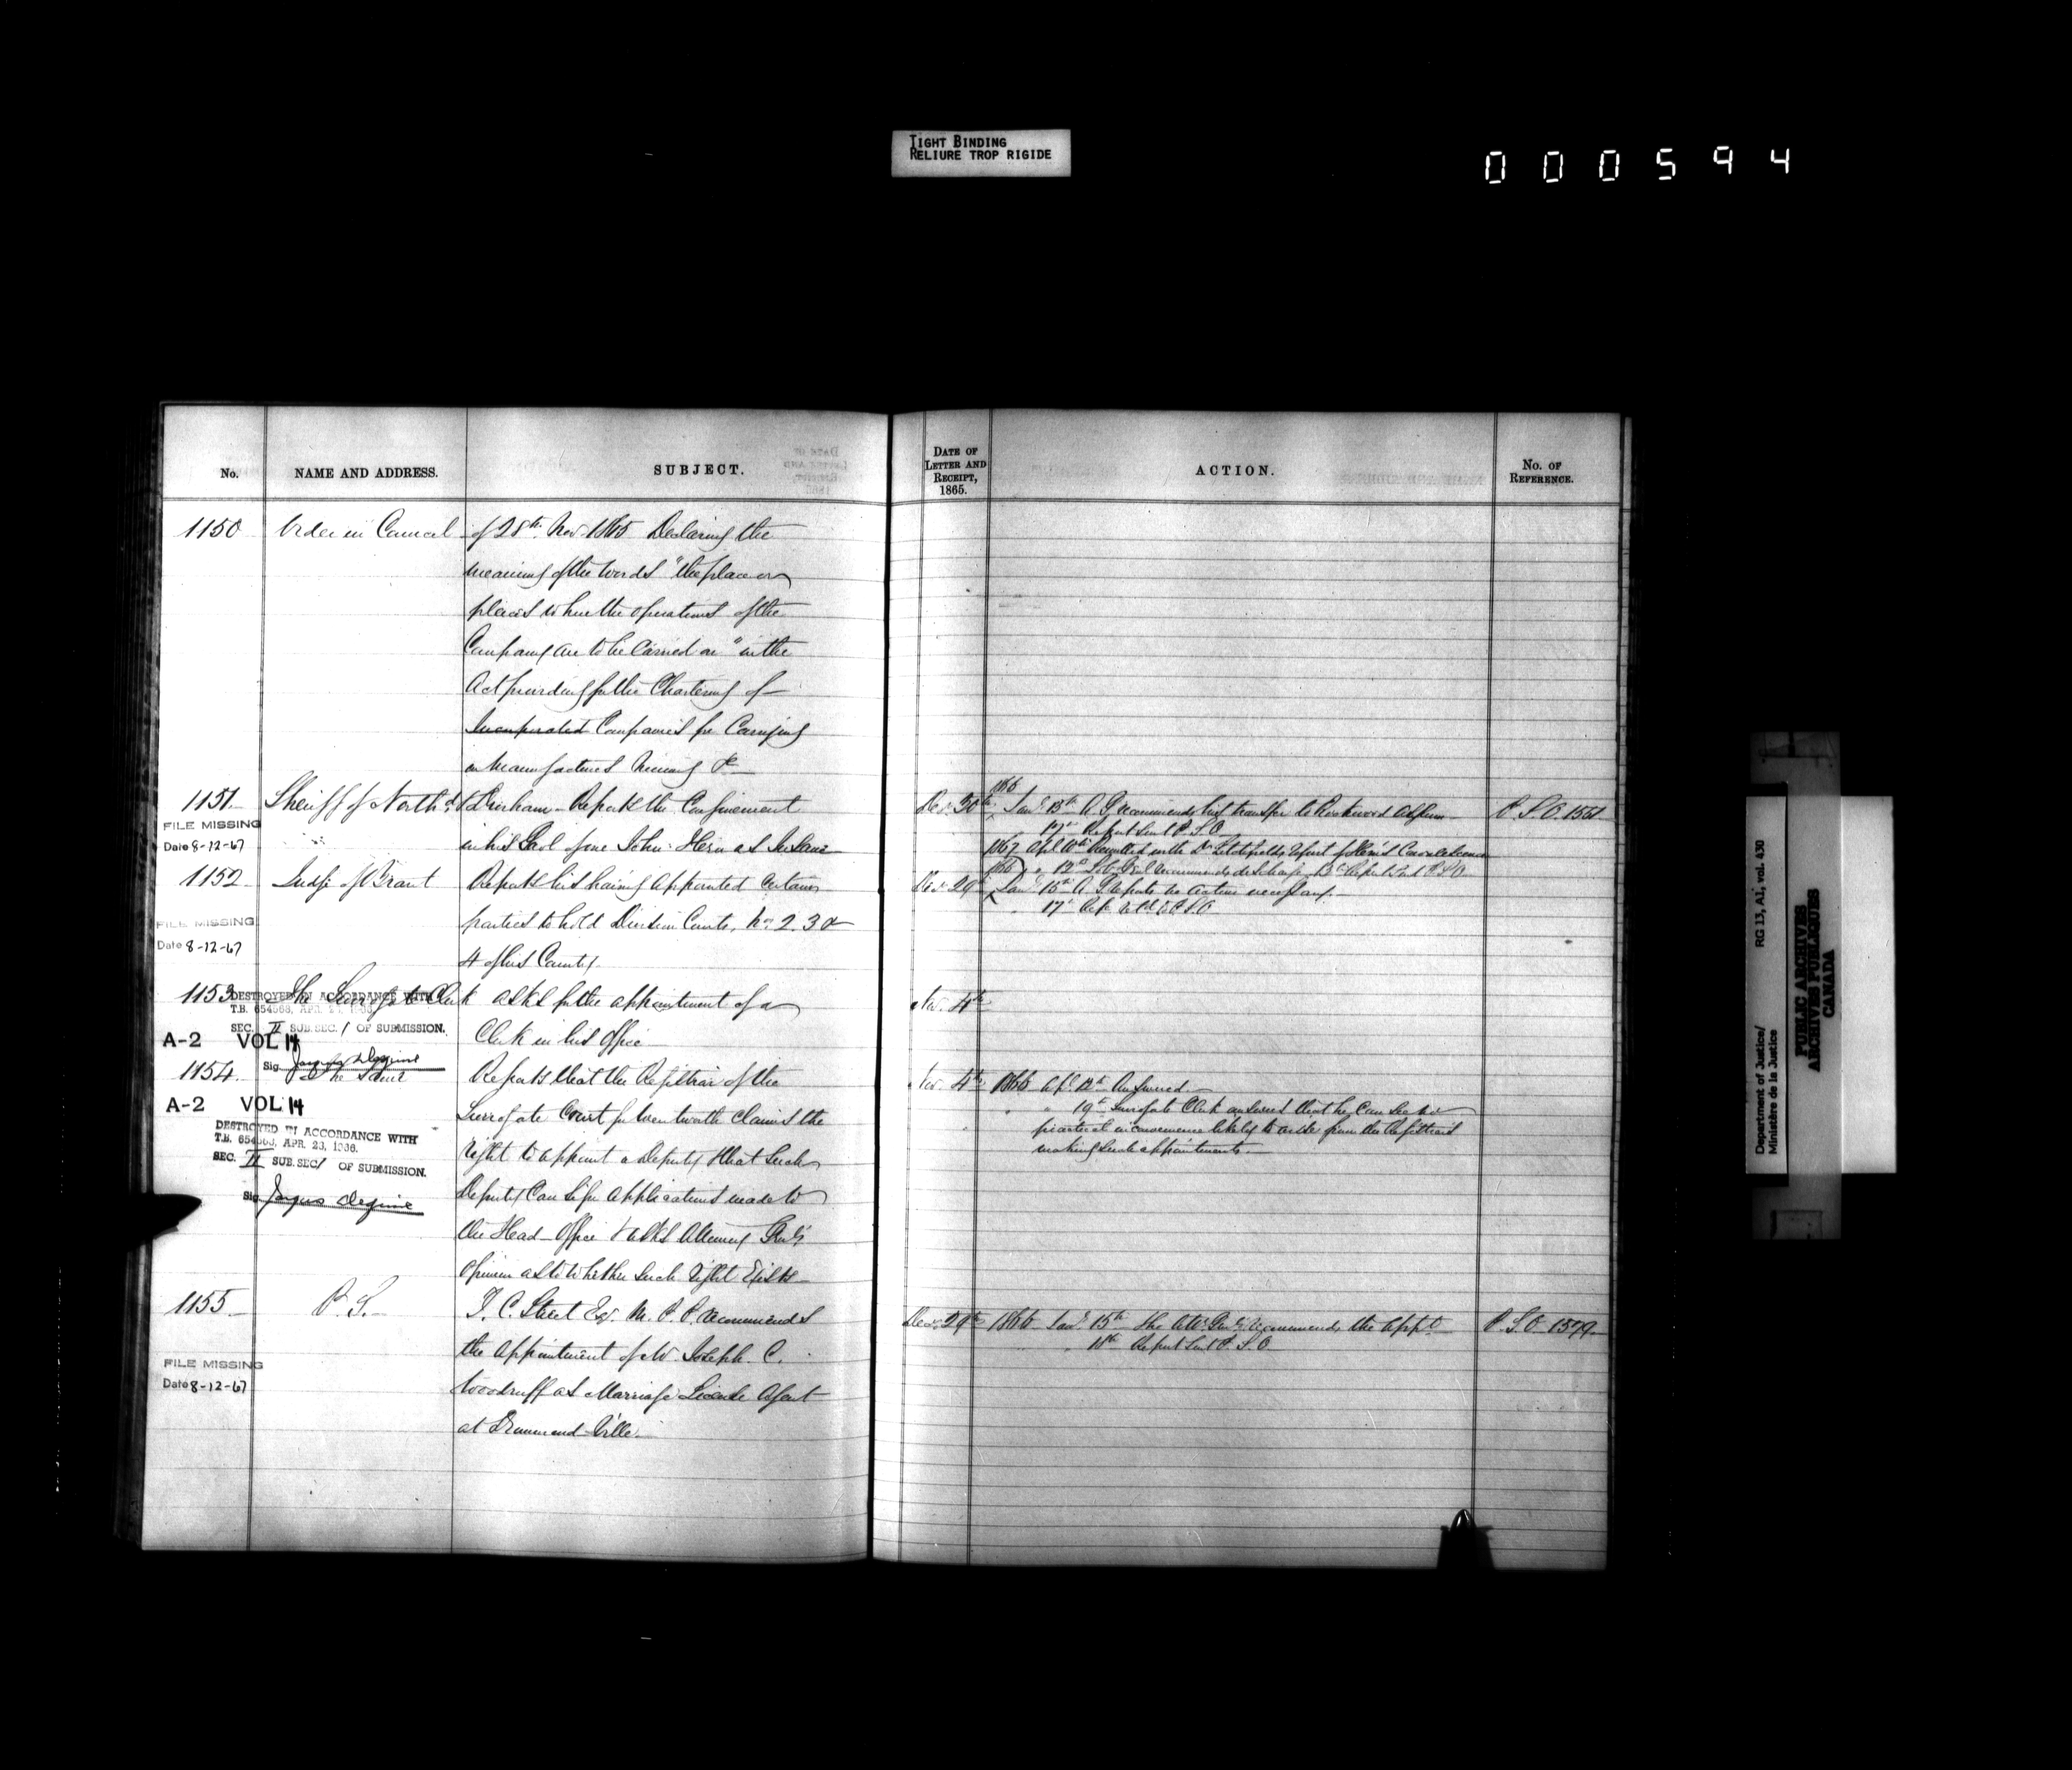 TIGHT BINDING
RELIURE TROP RIGIDE
000594
No. NAME AND ADDRESS. SUBJECT.
1150 Order in Council of 28th Nov. 1865 Declaring the
meaning of the words "the place or
places where the operations of the
Company are to be Carried on" in the
Act providing for the Chartering of
Incorporated Companies for Carrying
on Manufactures Mining &c
1151 Sheriff of North'd & Durham Reports the Confinement
FILE MISSING
Date 8-12-67
in his Gaol of one John Hern as Insane
1152 Judge of Brant Reports his having appointed certain
FILE MISSING
Date 8-12-67
parties to hold Division Courts, No 2. 3 &
4 of his County.
1153 The Surrogate Clerk asks for the appointment of a
DESTROYED IN ACCORDANCE WITH
T.B. 654563, APR. 23, 1966.
SEC. II SUB.SEC. 1 OF SUBMISSION.
Clerk in his Office
A-2 VOL 14
Sig.
1154 The Same Reports that the Registrar of the
A-2 VOL 14
Surrogate Court for Wentworth claims the
DESTROYED IN ACCORDANCE WITH
T.B. 654563, APR. 23, 1966.
SEC. II SUB.SEC/ OF SUBMISSION.
Sig.
right to appoint a Deputy & that such
Deputy Can sign applications made to
the Head Office & asks Attorney Genl's
opinion as to whether such right Exists
1155 P. S. T. C. Street Esq. M. P. P. recommends
the appointment of Mr. Joseph C.
FILE MISSING
Date 8-12-67
Woodruff as Marriage License Agent
at Drummondville
DATE OF
LETTER AND
RECEIPT,
1865.
ACTION. No. OF
REFERENCE.
1866
Dec. 30th Jany 13th A. G. recommends his transfer to Rockwood Asylum P. S. O. 1561
17th Report Sent P. S. O
1867 Apl 11th with Dr Litchfield's report of Hern's Convalescence
12th Sol. Genl recommends discharge Report Sent P.S.O
1866
Dec. 29th Jany 15th A. G. reports no action necessary.
17th Rep. P.S.O
Nov. 4th
Nov. 4th 1866 Apl. 12th Answered
" 19th Surrogate Clerk answers that he can see no
practical inconvenience likely to arise from the Registrars
making such appointments.
Dec. 29th 1866 Jany 15th The Atty Genl recommends the appt. P. S. O. 1579
" 18th Report Sent P. S. O
Department of Justice/
Ministère de la Justice
RG 13, A1, vol. 430
PUBLIC ARCHIVES
ARCHIVES PUBLIQUES
CANADA